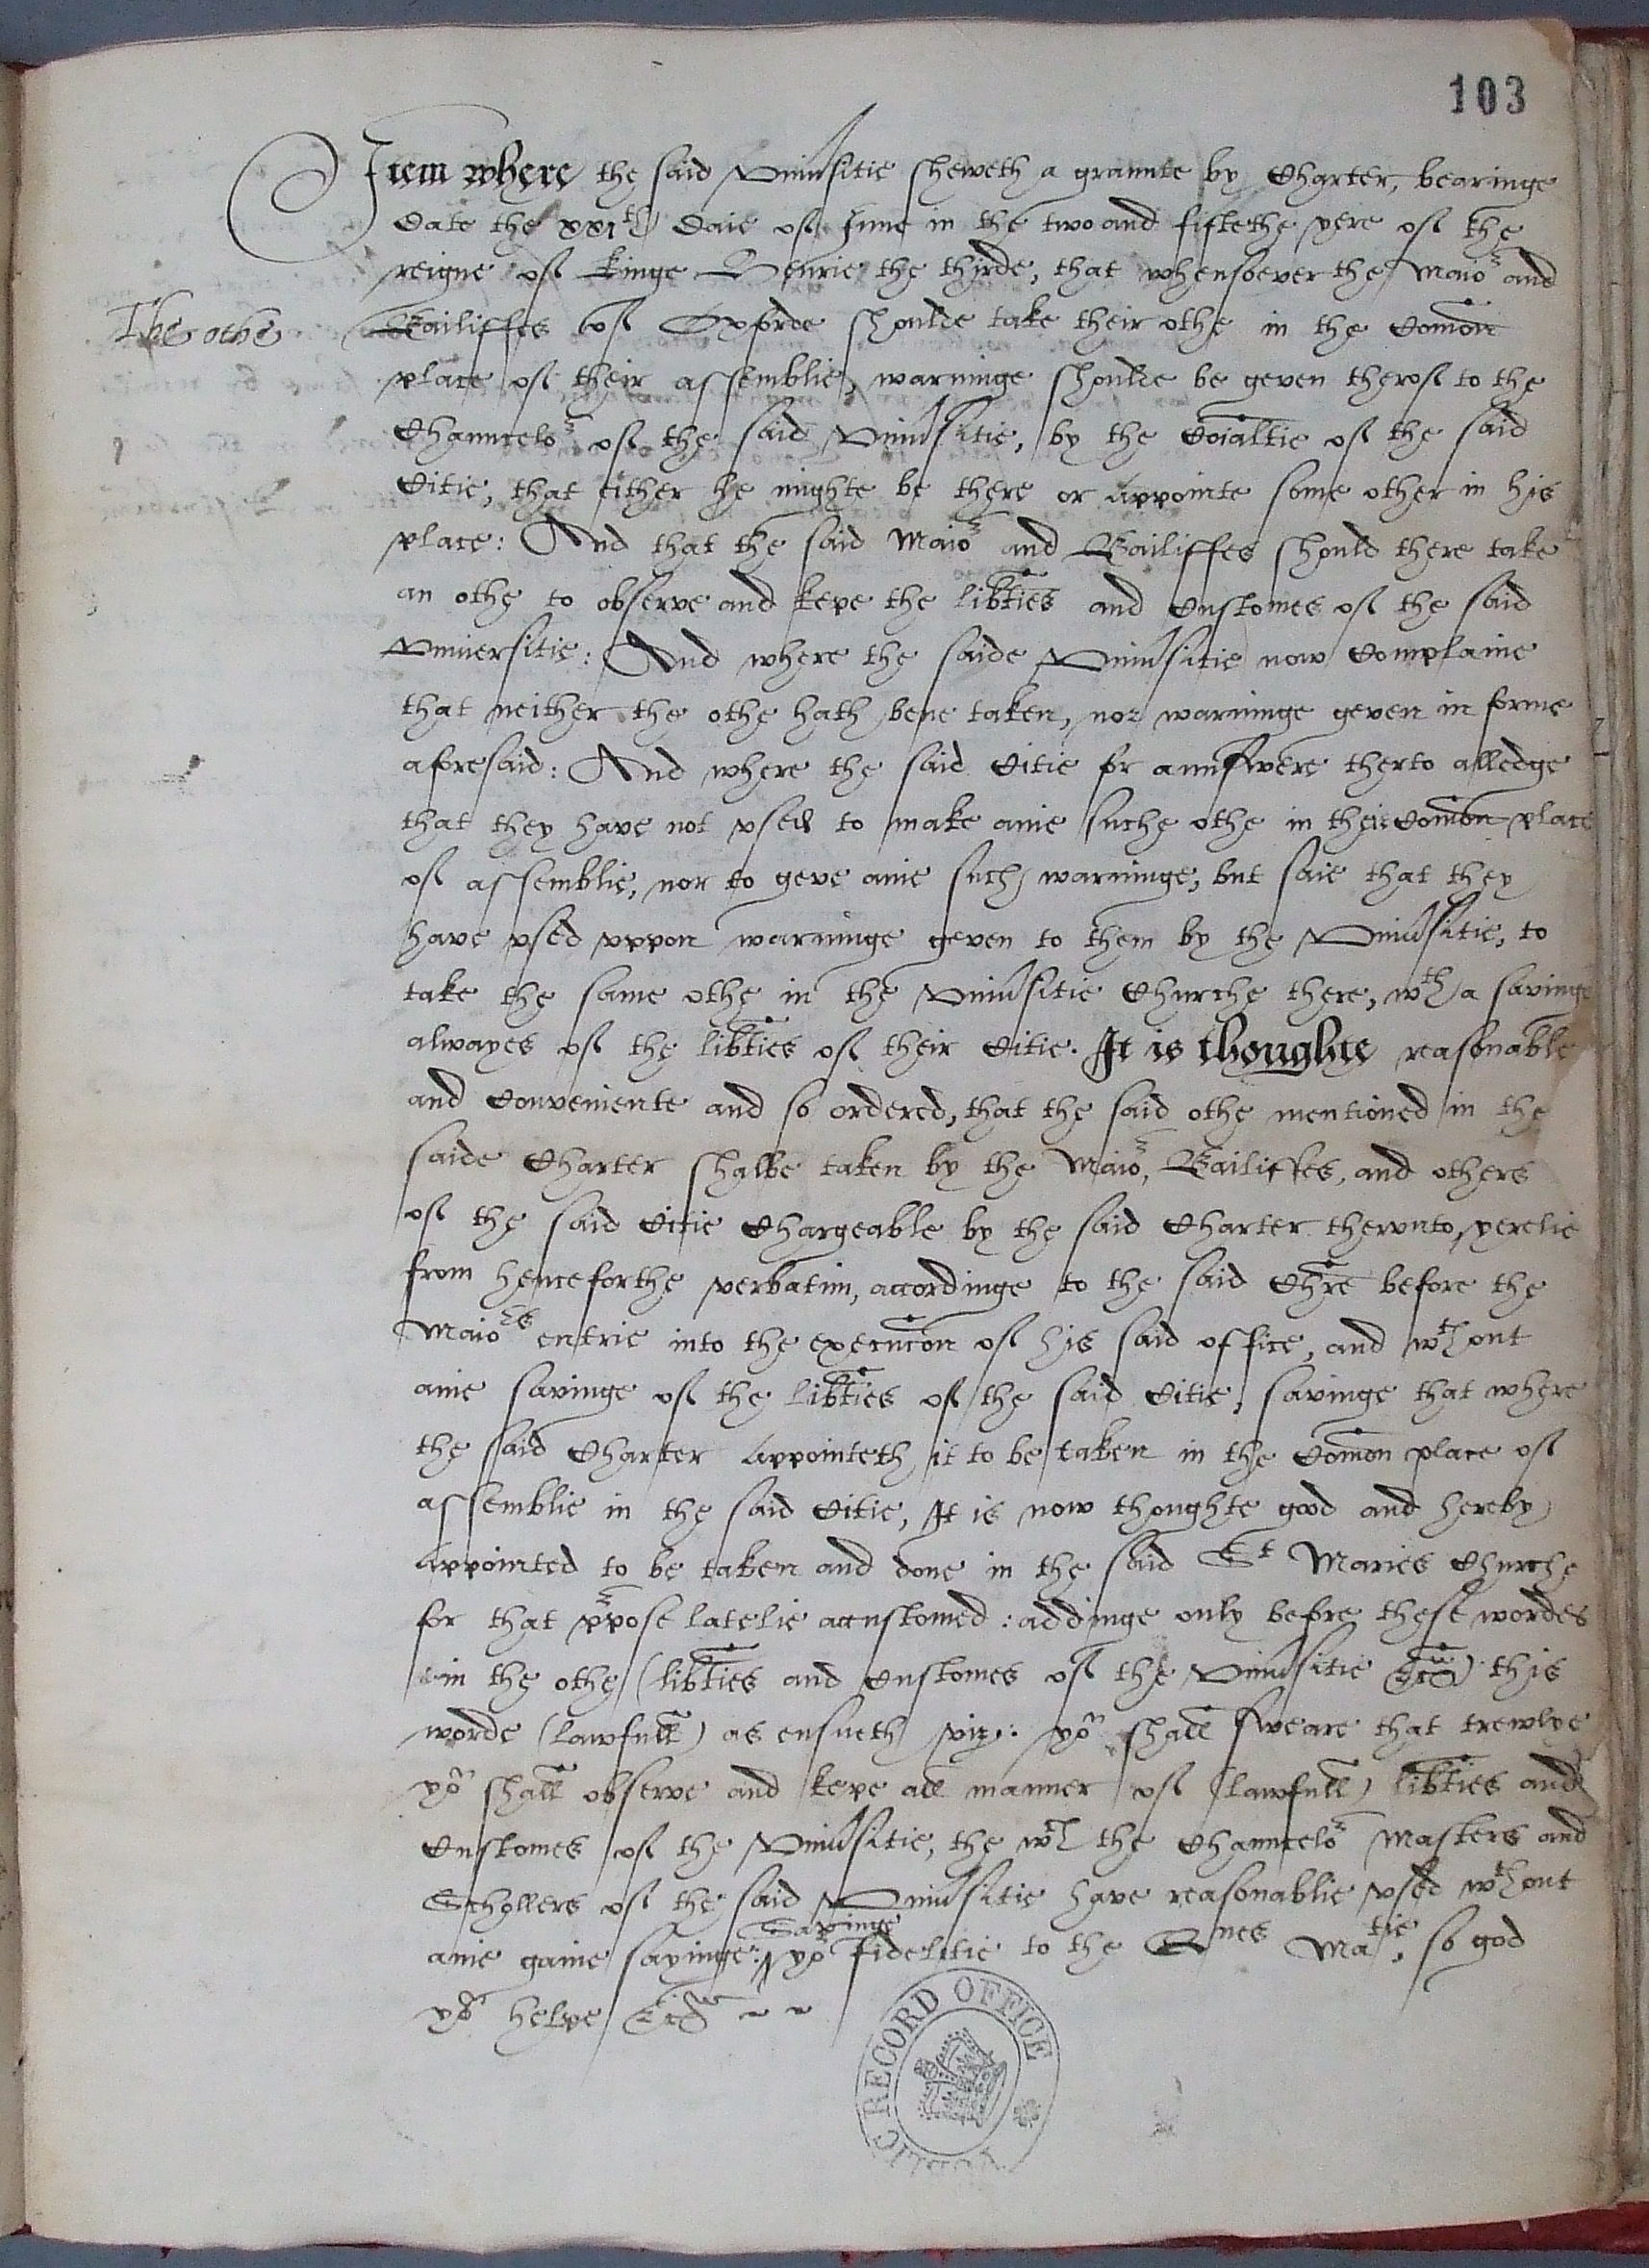 103
Item where the said Uniusitie sheweth a graunte by Charter, bearinge
date the xxith daie of June in the two and fiftethe yere of the
reigne of Kinge Henrie the thirde, that whensoever the Maior and
The othe
Bailiffes of Oxforde shoulde take their othe in the Comon
place of their assemblie, warninge shoulde be geven therof to the
Chauncelor of the said Uniusitie, by the Coialtie of the said
Citie, that either he mighte be there or appointe some other in his
place: And that the said Maior and Bailiffes should there take
an othe to observe and kepe the libties and Customes of the said
Universitie: And where the saide Uniusitie now Complaine
that neither the othe hath bene taken, nor warninge geven in forme
aforesaid: And where the said Citie for aunswere therto alledge
that they have not vsed to make anie suche othe in their Comon place
of assemblie, nor to geve anie such warninge, but saie that they
have vsed vppon warninge geven to them by the Uniusitie, to
take the same othe in the Uniusitie Churche there, wth a savinge
alwayes of the libties of their Citie. It is thoughte reasonable
and Conveniente and so ordered, that the said othe mentioned in the
saide Charter shalbe taken by the Maior, Bailiffes, and others
of the said Citie Chargeable by the said Charter thervnto, yerelie
from henceforthe verbatim, accordinge to the said Chre before the
Maiors entrie into the execucon of his said office, and wthout
anie savinge of the libties of the said Citie, savinge that where
the said Charter appointeth it to be taken in the Comon place of
assemblie in the said Citie, It is now thoughte good and hereby
appointed to be taken and done in the said St Maries Churche
for that ppose latelie accustomed: addinge only before these wordes
in the othe (libties and Customes of the Uniusitie &c) this
worde (lawfull) as ensueth viz: yo shall sweare that trewlye
yo shall observe and kepe all manner of (lawfull) libties and
Customes of the Uniusitie, the wch the Chauncelor Masters and
Schollers of the said Uniusitie have reasonablie vsed wthout
anie gaine sayinge: Savinge yor fidelitie to the Qnes Matie, so god
yo helpe &c
RECORD OFFICE